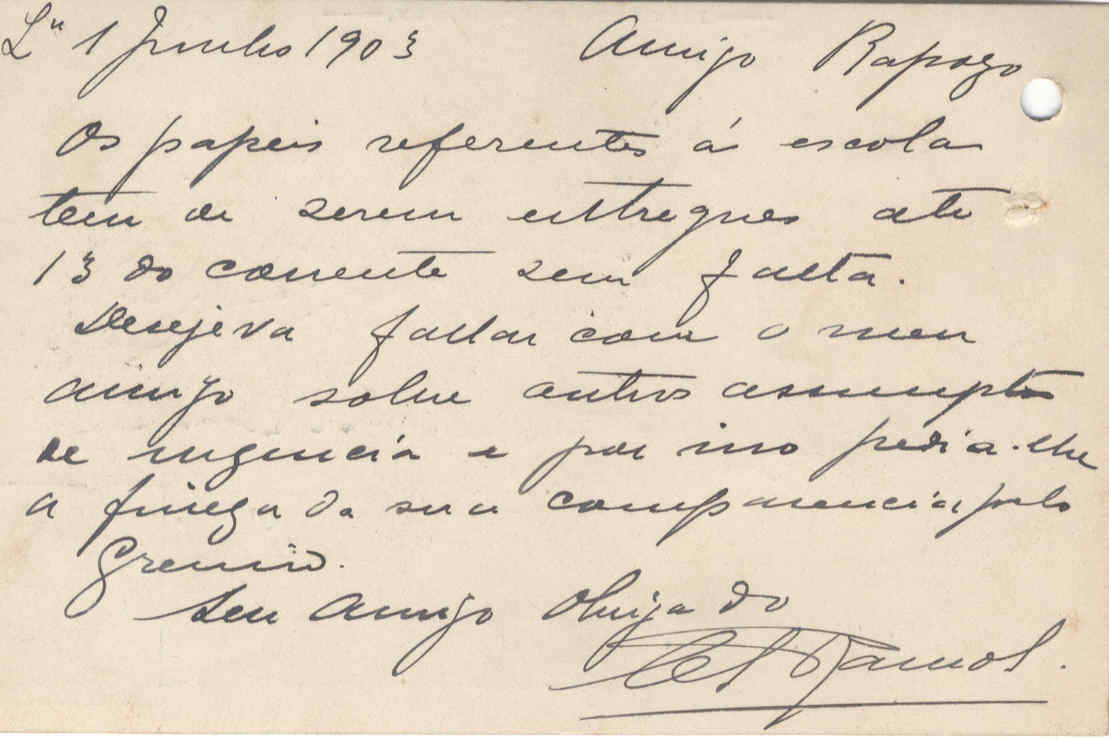 Lxª 1 Junho 1903 Amigo Rapozo
Os papeis referentes á escola
tem de serem entregues até
13 do corrente sem falta.
Desejava fallar com o meu
amigo sobre outros assumptos
de urgencia e por isso pedia-lhe
a fineza da sua comparencia pelo
Gremio.
Seu amigo obrigado
Ramos.